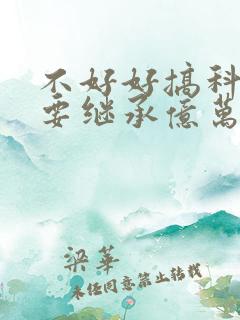 不好好搞科
要继承億萬
梁華
未经同意禁止转载